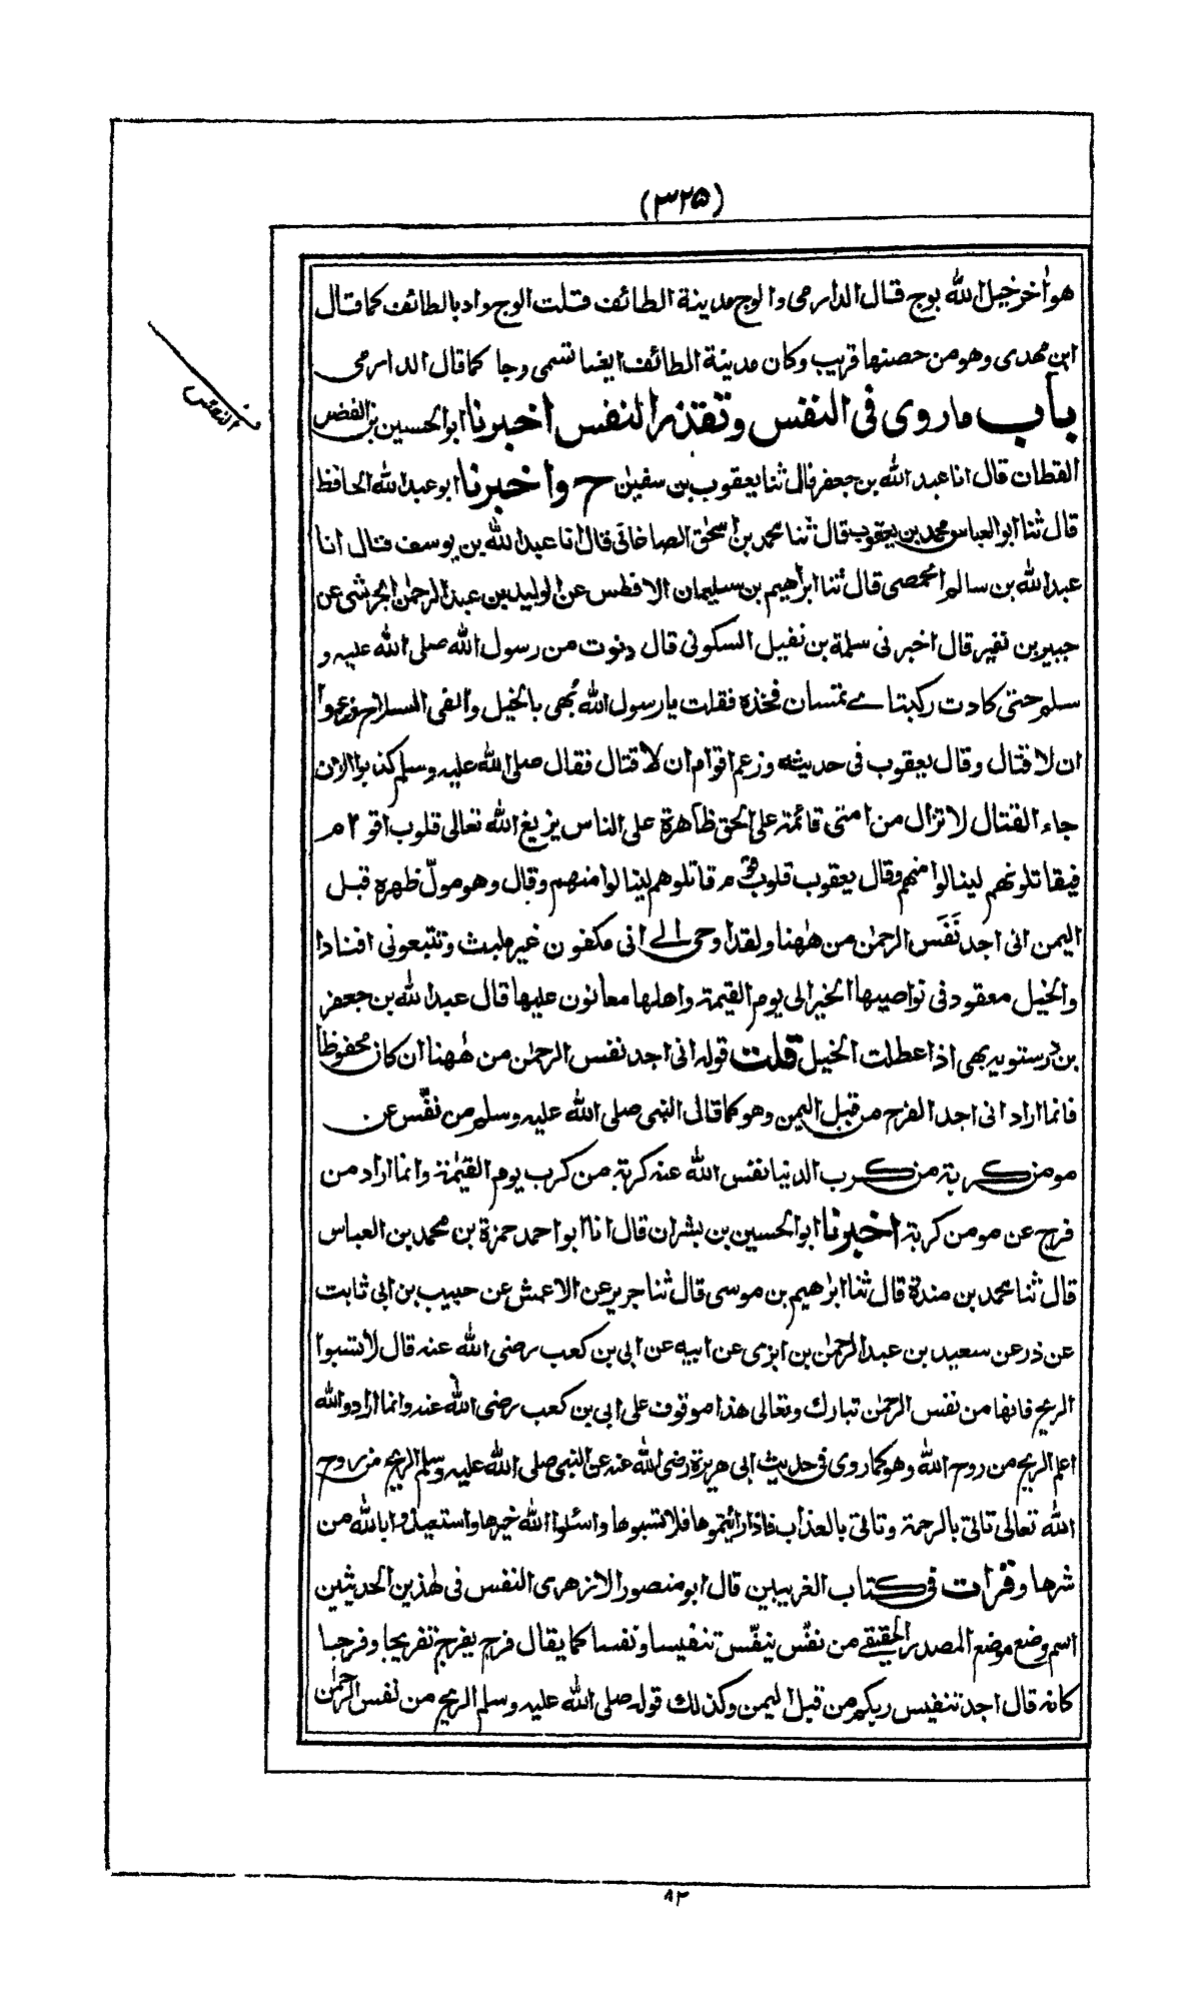 (٣٢٥)
هو اٰخر خيل الله بوج قال الدارمى والوج مدينة الطائف قلت الوج واد بالطائف كما قال
ابن مهدى وهو من حصنها قريب وكان مدينة الطائف ايضا تسمى وجا كما قال الدارمى
باب ما روى فى النفس وتقذر النفس اخبرنا ابو الحسين بن الفضل
القطان قال انا عبد الله بن جعفر قال ثنا يعقوب بن سفيٰن ح واخبرنا ابو عبد الله الحافظ
قال ثنا ابو العباس محمد بن يعقوب قال ثنا محمد بن اسحٰق الصاغانى قال انا عبد الله بن يوسف قال انا
عبد الله بن سالم الحمصى قال ثنا ابرٰهيم بن سليمان الافطس عن الوليد بن عبد الرحمٰن الجرشى عن
جبير بن نفير قال اخبرنى سلمة بن نفيل السكونى قال دنوت من رسول الله صلى الله عليه و
سلم حتى كادت ركبتاى تمسان فخذه فقلت يا رسول الله بُهى بالخيل والقى السلاح وزعموا
ان لا قتال وقال يعقوب فى حديثه وزعم اقوام ان لا قتال فقال صلى الله عليه وسلم كذبوا الان
جاء القتال لا تزال من امتى قائمة على الحق ظاهرة على الناس يزيغ الله تعالى قلوب اقوام
فيقاتلونهم لينالوا منهم وقال يعقوب قلوب قوم قاتلوهم لينالوا منهم وقال وهو مولّ ظهره قبل
اليمن انى اجد نَفَس الرحمٰن من هٰهنا ولقد اوحى الى انى مكفون غير ملبث وتتبعونى افنادا
والخيل معقود فى نواصيها الخير الى يوم القيمة واهلها معانون عليها قال عبد الله بن جعفر
بن درستويه بهى اذا عطلت الخيل قلت قوله انى اجد نفس الرحمٰن من هٰهنا ان كان محفوظا
فانما اراد انى اجد الفرج من قبل اليمن وهو كما قال النبى صلى الله عليه وسلم من نفّس عن
مومن كربة من كرب الدنيا نفس الله عنه كربة من كرب يوم القيٰمة وانما اراد من
فرج عن مومن كربة اخبرنا ابو الحسين بن بشران قال انا ابو احمد حمزة بن محمد بن العباس
قال ثنا محمد بن مندة قال ثنا ابرٰهيم بن موسى قال ثنا جرير عن الاعمش عن حبيب بن ابى ثابت
عن ذر عن سعيد بن عبد الرحمٰن بن ابزى عن ابيه عن ابى بن كعب رضى الله عنه قال لا تسبوا
الريح فانها من نفس الرحمٰن تبارك وتعالى هذا موقوف على ابى بن كعب رضى الله عنه وانما اراد والله
اعلم الريح من روح الله وهو كما روى فى حديث ابى هريرة رضى الله عنه عن النبى صلى الله عليه وسلم الريح من روح
الله تعالى تاتى بالرحمة وتاتى بالعذاب فاذا رائيتموها فلا تسبوها واسئلوا الله خيرها واستعيذوا بالله من
شرها وقرات فى كتاب الغريبين قال ابو منصور الازهرى النفس فى هٰذين الحديثين
اسم وضع موضع المصدر الحقيقى من نفّس ينفّس تنفيسا ونفسا كما يقال فرج يفرج تفريجا وفرجا
كانه قال اجد تنفيس ربكم من قبل اليمن وكذلك قوله صلى الله عليه وسلم الريح من نفس الرحمٰن
٨٢